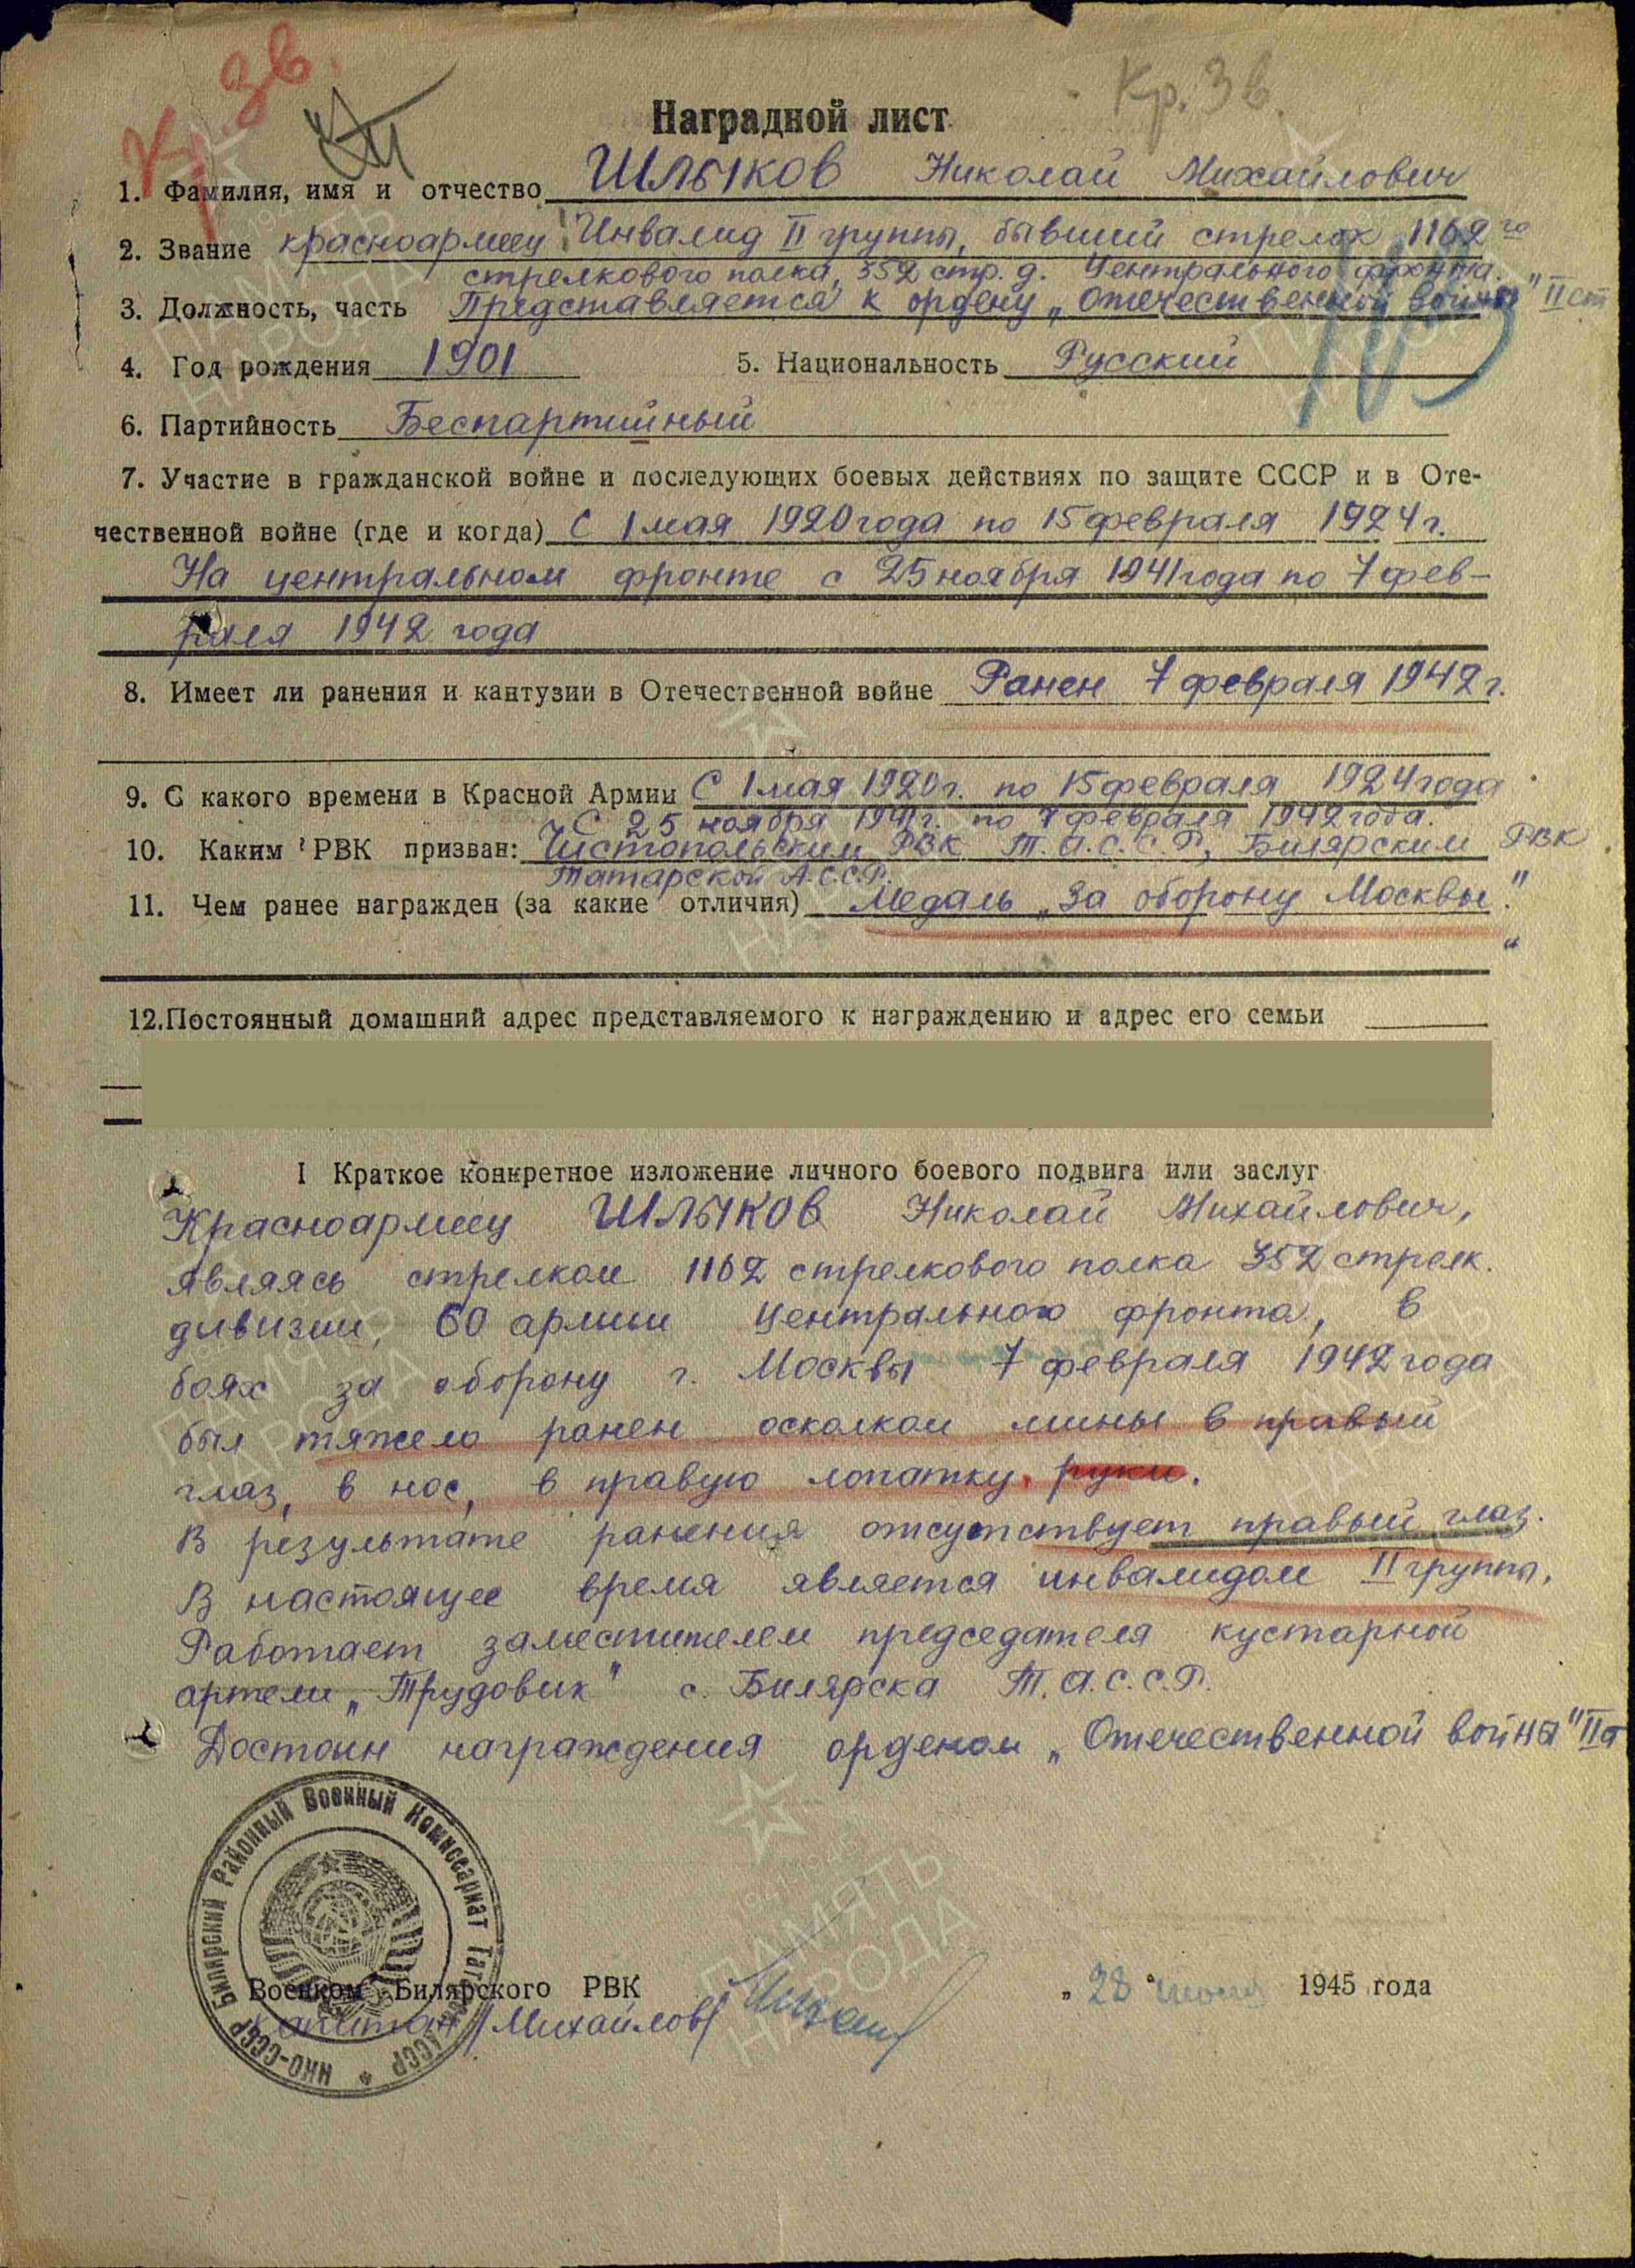 Кр. Зв.
Кр. Зв.
Наградной лист
1. Фамилия, имя и отчество Шлыков Николай Михайлович
2. Звание красноармеец Инвалид II группы, бывший стрелок 1162го
стрелкового полка, 352 стр. д. Центрального фронта.
3. Должность, часть Представляется к ордену „Отечественной войны" II ст
4. Год рождения 1901 5. Национальность Русский
6. Партийность Беспартийный
7. Участие в гражданской войне и последующих боевых действиях по защите СССР и в Оте-
чественной войне (где и когда) С 1 мая 1920 года по 15 февраля 1924 г.
На центральном фронте с 25 ноября 1941 года по 7 фев-
раля 1942 года
8. Имеет ли ранения и кантузии в Отечественной войне Ранен 7 февраля 1942 г.
9. С какого времени в Красной Армии С 1 мая 1920 г. по 15 февраля 1924 года
С 25 ноября 1941 г. по 7 февраля 1942 года.
10. Каким РВК призван: Чистопольским РВК Т.А.С.С.Р, Билярским РВК
Татарской А.С.С.Р.
11. Чем ранее награжден (за какие отличия) Медаль „За оборону Москвы".
12. Постоянный домашний адрес представляемого к награждению и адрес его семьи
I Краткое конкретное изложение личного боевого подвига или заслуг
Красноармеец Шлыков Николай Михайлович,
являясь стрелком 1162 стрелкового полка 352 стрелк.
дивизии, 60 армии Центрального фронта, в
боях за оборону г. Москвы 7 февраля 1942 года
был тяжело ранен осколком мины в правый
глаз, в нос, в правую лопатку руки.
В результате ранения отсутствует правый глаз.
В настоящее время является инвалидом II группы,
Работает заместителем председателя кустарной
артели „Трудовик" с. Билярска Т.А.С.С.Р.
Достоин награждения орденом „Отечественной война" II ст
Билярский Районный Военный Комиссариат Татарской АССР * НКО-СССР
Военком Билярского РВК „28" 1945 года
капитан /Михайлов/
ПАМЯТЬ НАРОДА